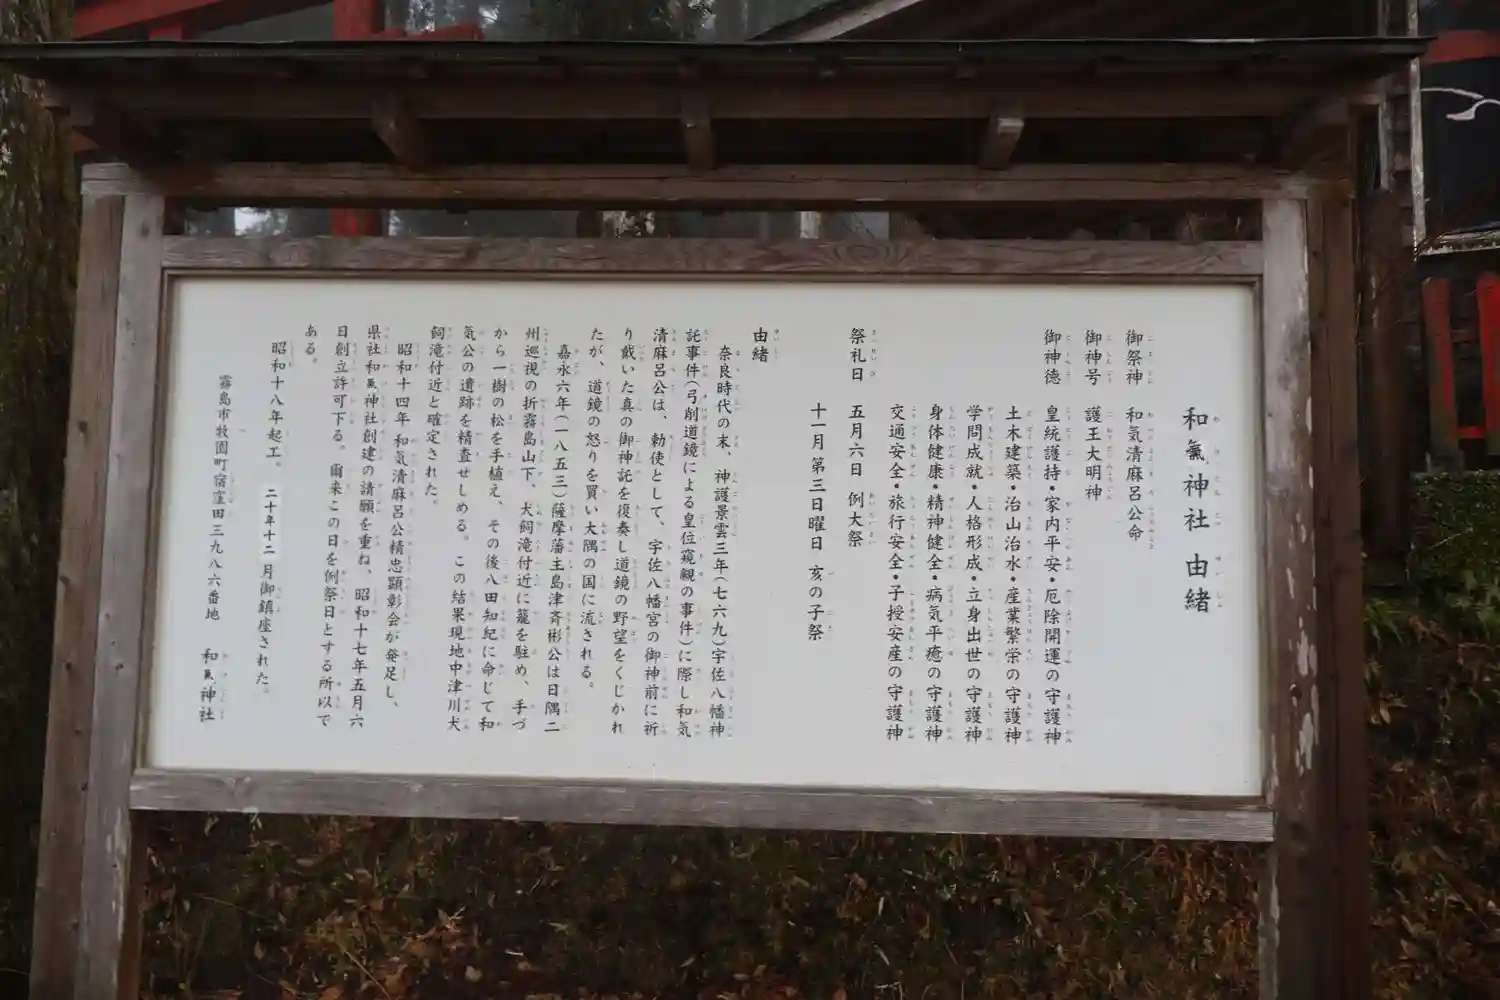 和氣神社 由緒
御祭神 和気清麻呂公命
御神号 護王大明神
御神徳 皇統護持・家内平安・厄除開運の守護神
土木建築・治山治水・産業繁栄の守護神
学問成就・人格形成・立身出世の守護神
身体健康・精神健全・病気平癒の守護神
交通安全・旅行安全・子授安産の守護神
祭礼日 五月六日 例大祭
十一月第三日曜日 亥の子祭
由緒
奈良時代の末、神護景雲三年(七六九)宇佐八幡神
託事件(弓削道鏡による皇位窺覦の事件)に際し和気
清麻呂公は、勅使として、宇佐八幡宮の御神前に祈
り戴いた真の御神託を復奏し道鏡の野望をくじかれ
たが、道鏡の怒りを買い大隅の国に流される。
嘉永六年(一八五三)薩摩藩主島津斉彬公は日隅二
州巡視の折霧島山下、犬飼滝付近に籠を駐め、手づ
から一樹の松を手植え、その後八田知紀に命じて和
気公の遺跡を精査せしめる。この結果現地中津川犬
飼滝付近と確定された。
昭和十四年和気清麻呂公精忠顕彰会が発足し、
県社和氣神社創建の請願を重ね、昭和十七年五月六
日創立許可下る。爾来この日を例祭日とする所以で
ある。
昭和十八年起工。二十年十二月御鎮座された。
霧島市牧園町宿窪田三九八六番地 和氣神社